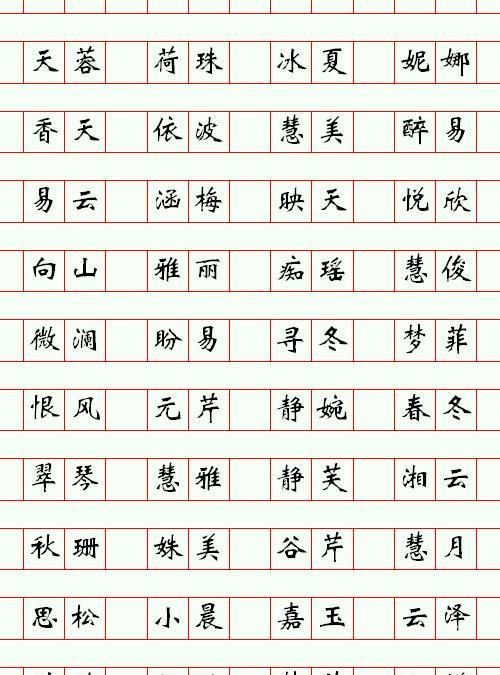 天蓉 荷珠 冰夏 妮娜
香天 依波 慧美 醉易
易云 涵梅 映天 悦欣
向山 雅丽 痴瑶 慧俊
微澜 盼易 寻冬 梦菲
恨风 元芹 静婉 春冬
翠琴 慧雅 静芙 湘云
秋珊 姝美 谷芹 慧月
思松 小晨 嘉玉 云泽